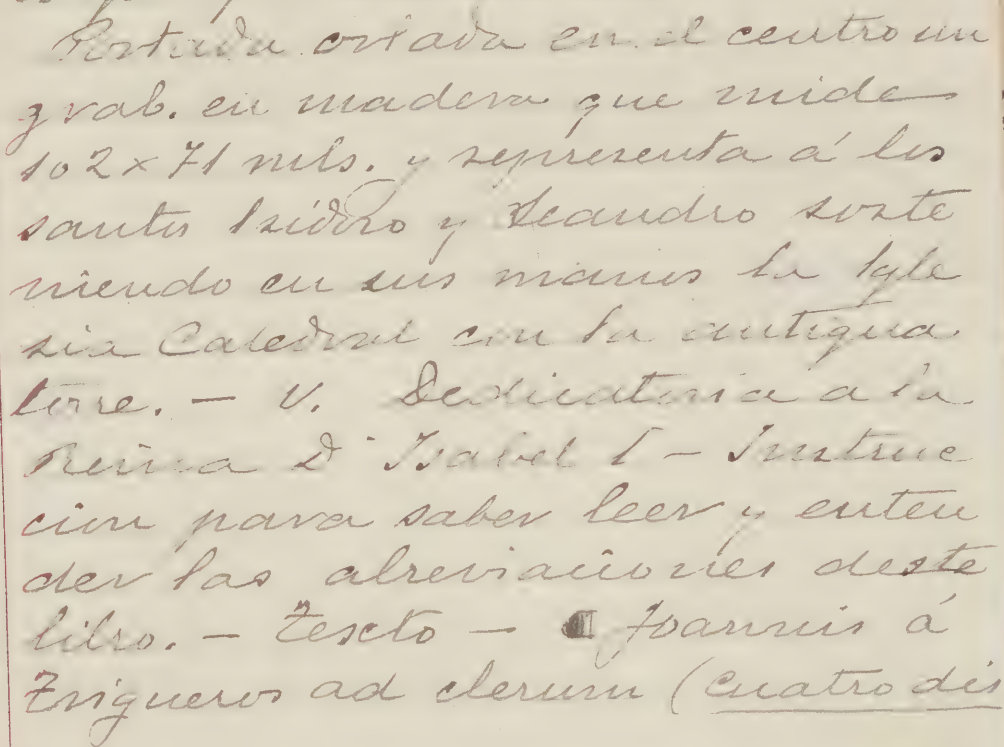 Portada orlada en el centro un
grab. en madera que mide
102 x 71 mils. y representa á los
santos Isidoro y Leandro soste
niendo en sus manos la Igle
sia Catedral con la antigua
torre. — V. Dedicatoria a la
Reina Dª Isabel I — Instruc
cion para saber leer y enten
der las abreviaciones deste
libro. — Texto — Joannis á
Trigueros ad clerum (Cuatro dis